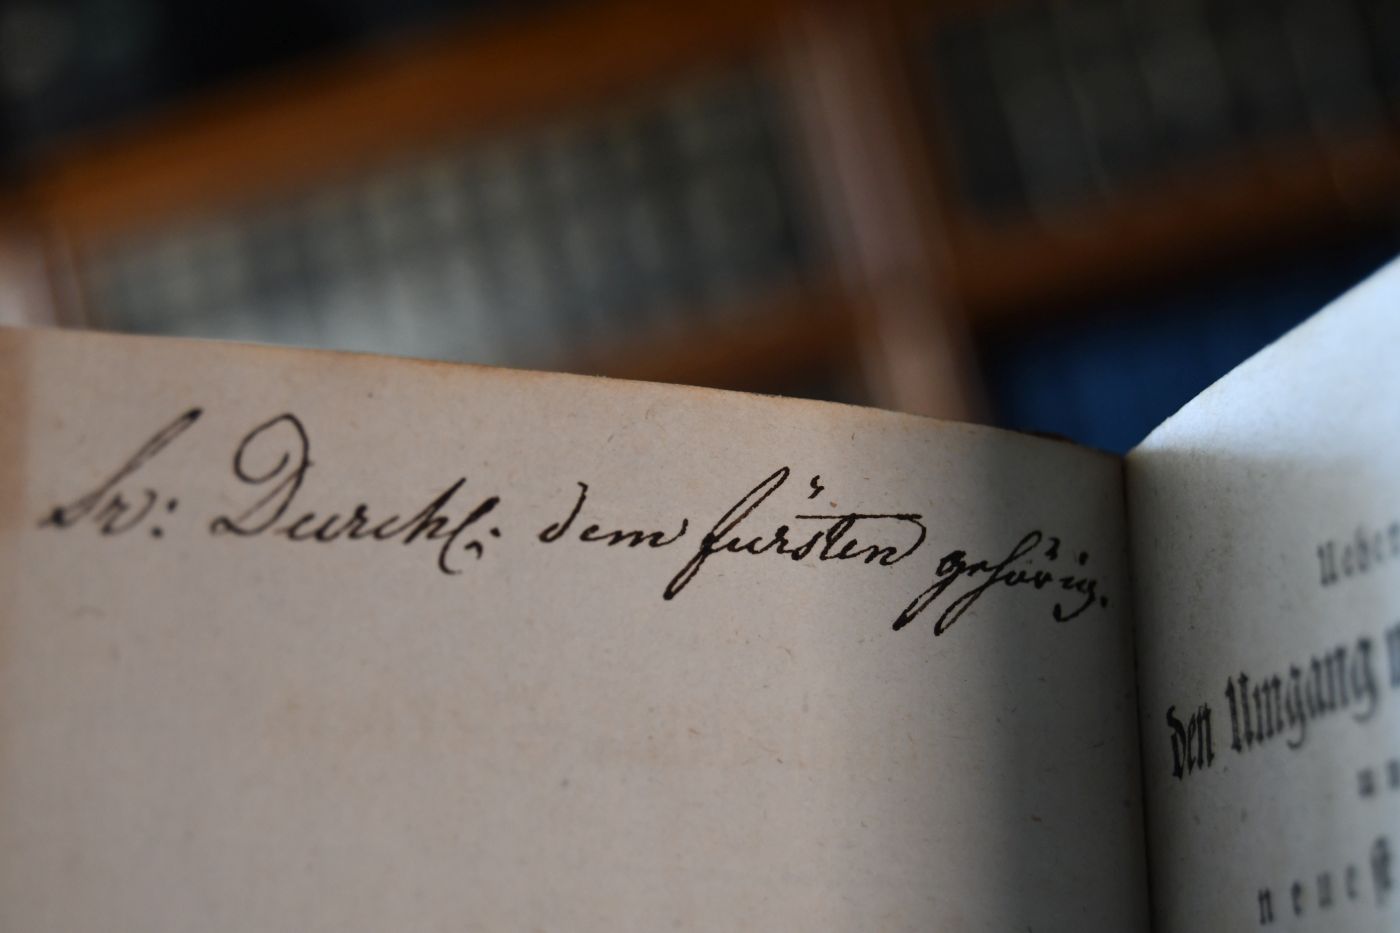 Sr: Durchl: dem fürsten gehörig.
Ueber
den Umgang
neue